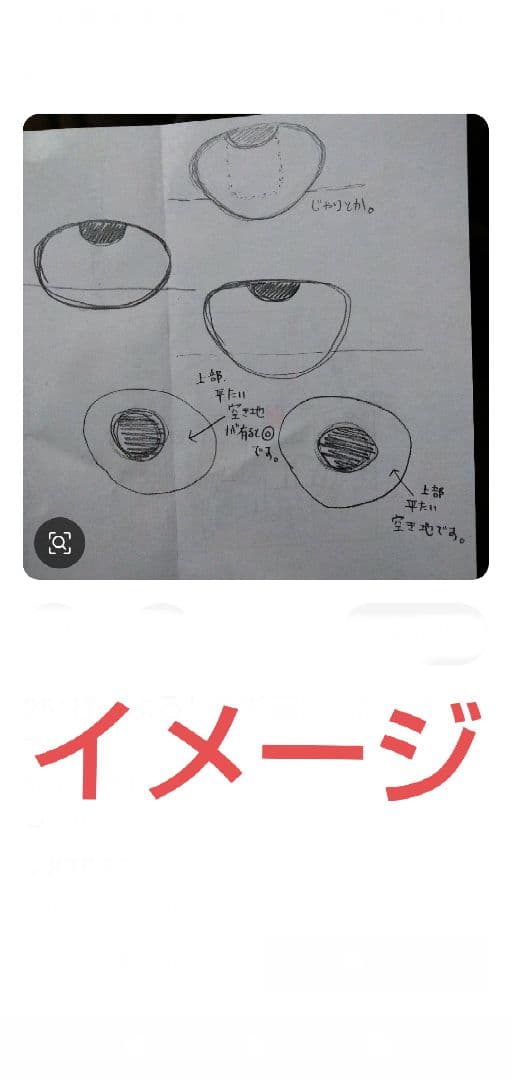 じゃりとか。
上部.
平たい
空き地
が有ると◎
です。
上部
平たい
空き地です。
イメージ